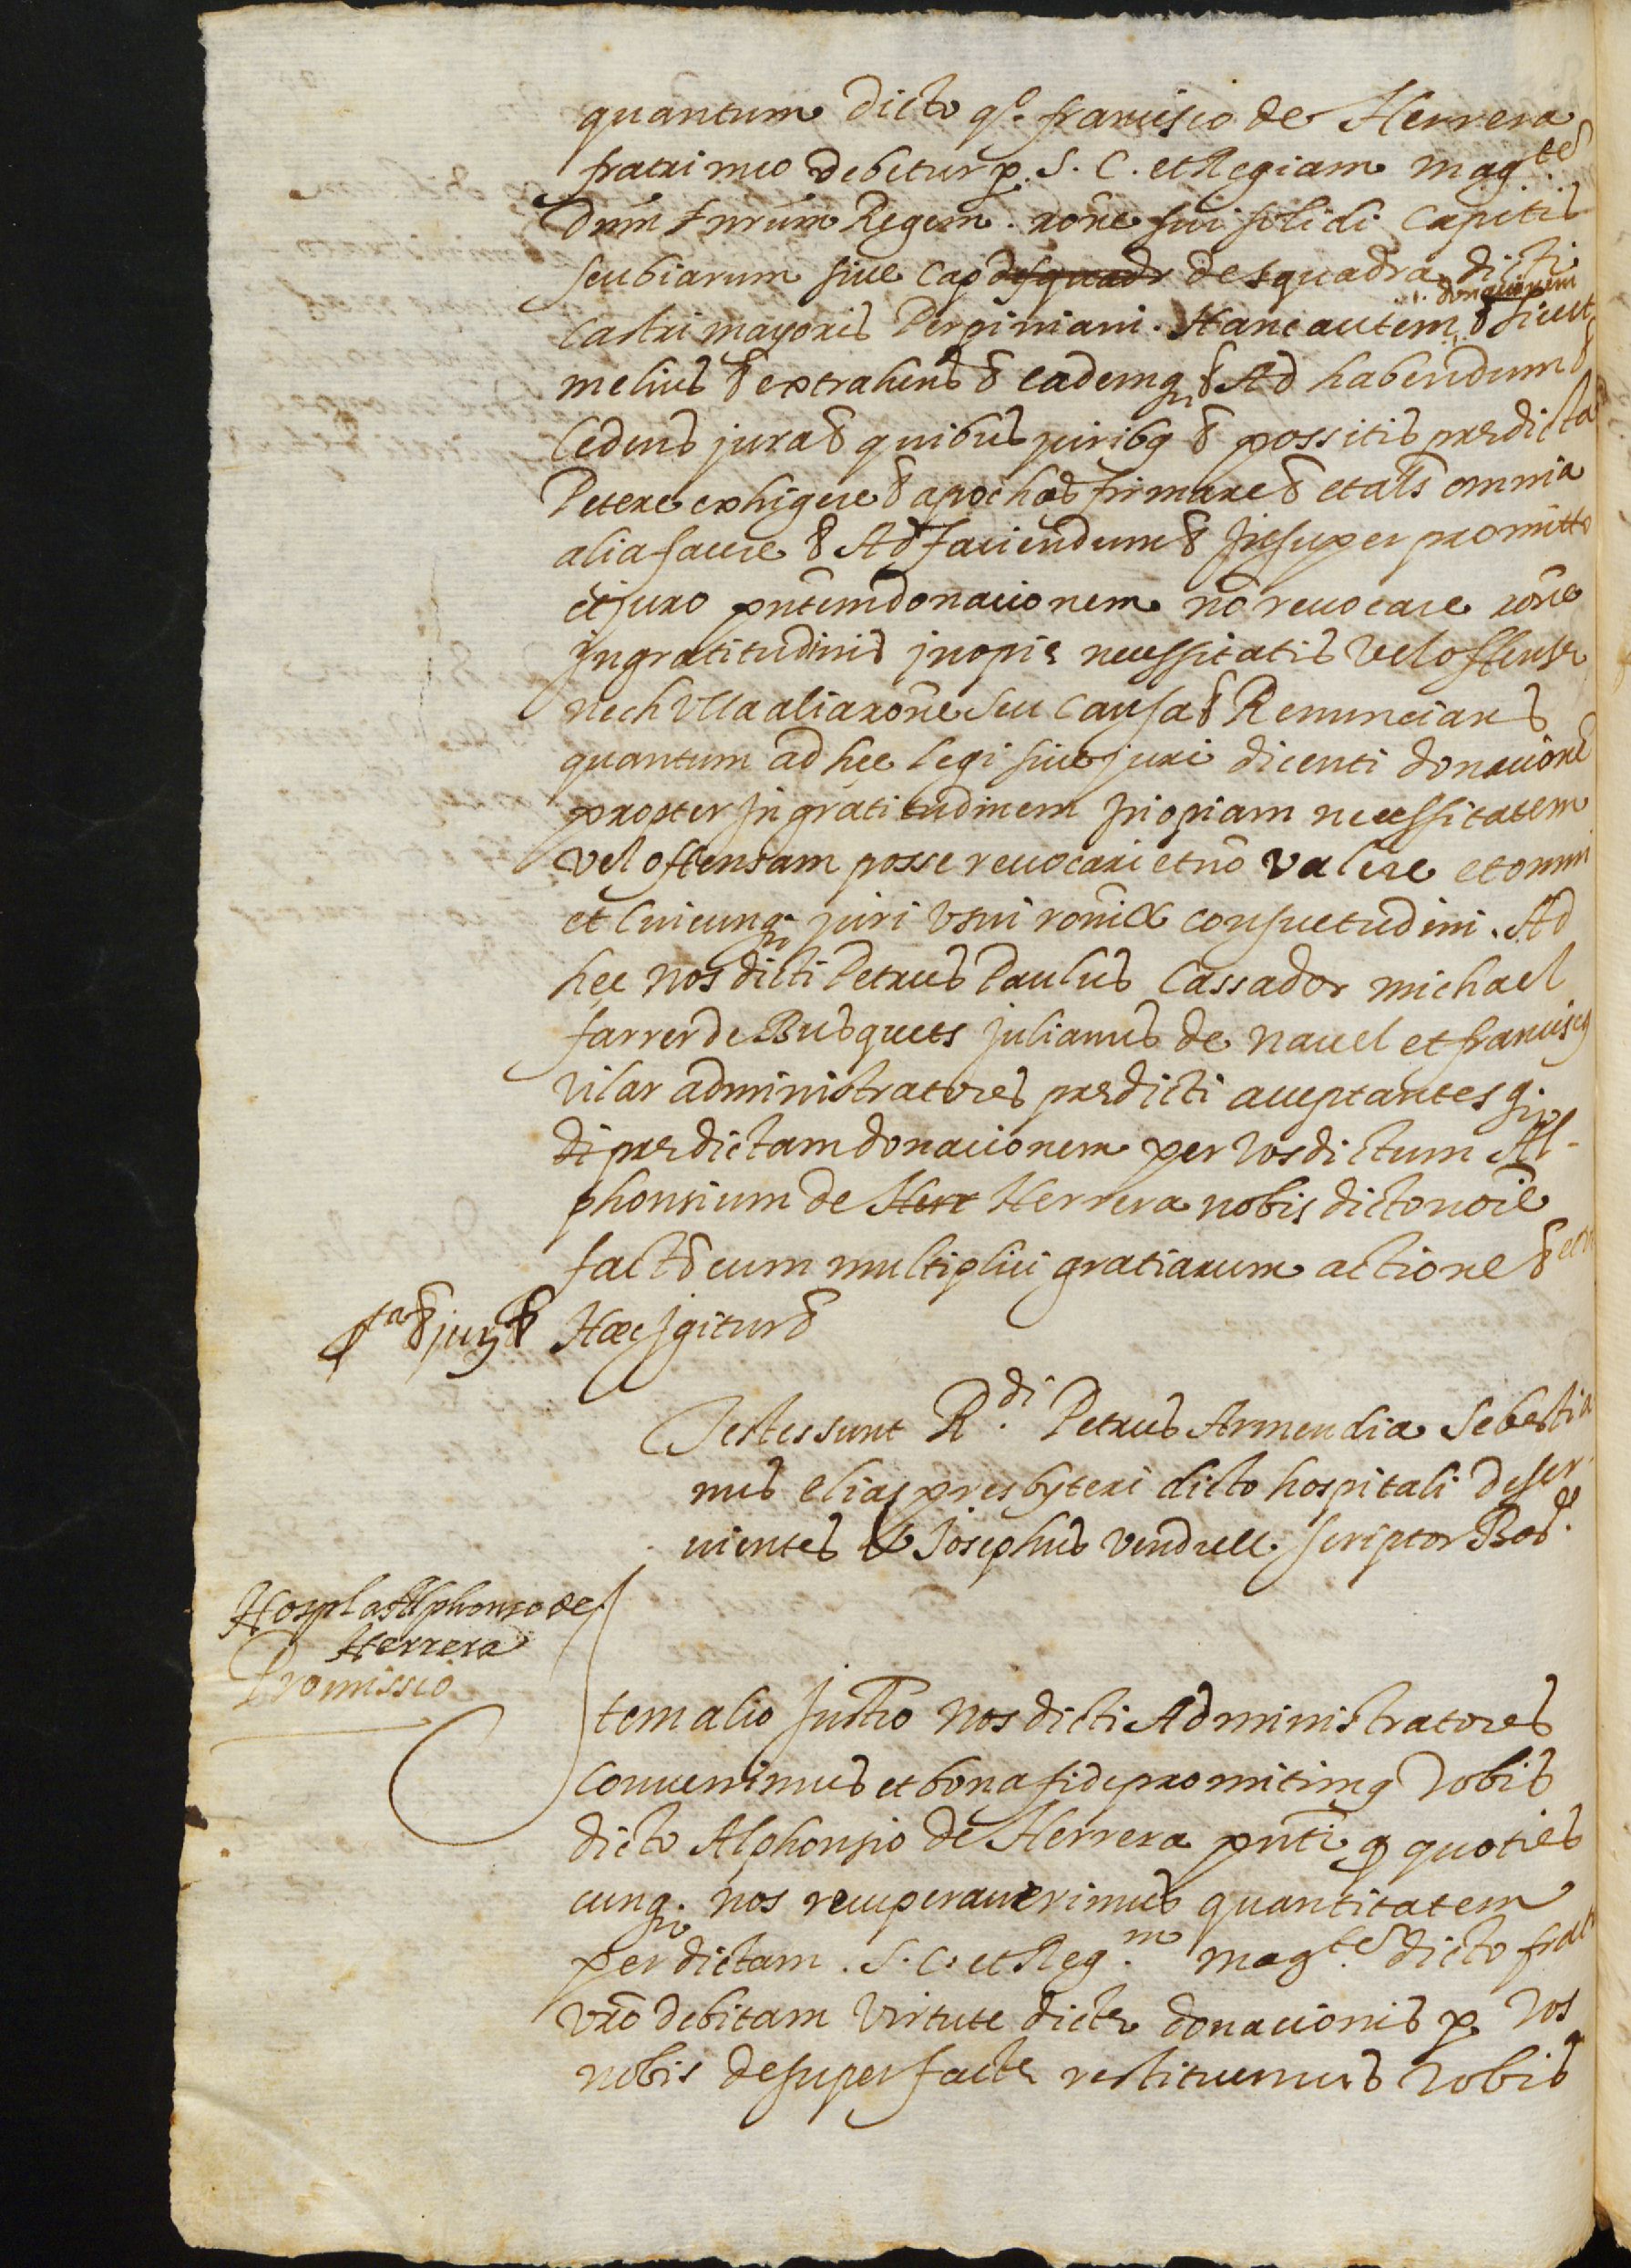 quantum dicto q.o francisco de Herrera
fratri meo debetur p. S. C. et Regiam mag.tem
Dnm nrum Regem. rone sui solidi capitis
scubiarum sive cap desquadr desquadra dicti
castri mayoris Perpiniani. Hanc autem donacionem & sicut
melius & extrahens & eademq & Ad habendum &
Cedens jura & quibus juribq & possitis predicta
Petere exhigere & apochas firmare & et als omnia
alia facere & Ad faciendum & Insuper promitto
et juro pntem donacionem no revocare rone
Ingratitudinis inopie necessitatis vel offense
nech ulla alia rone seu causa & Renuncians
quantum ad hec legi sive juri dicenti donacione
propter Ingratitudinem Inopiam necessitatem
vel offensam posse revocari et no valere et omni
et cuicunq juri usui roni & consuetudini. Ad
hec nos dicti Petrus Paulus Cassador michael
farrer de Busquets julianus de navel et franciscq
vilar administratores predicti acceptantes q.
di predictam donacionem per vos dictum Al-
phonsium de Herr Herrera nobis dicto noie
fact & cum multiplici gratiarum actione & et
ta & jur & Hec Igitur &
Testes sunt R.di Petrus Armendia Sebastia
nus elias presbyteri dicto hospitali deser
vientes & Josephus vendrell scriptor Bar
Hospl a Alphonso de
Herrera
Promissio
Item alio Instro nos dicti Administratores
Convenimus et bona fide promitimq vobis
dicto Alphonsio de Herrera pnti q quoties
cunq. nos recuperaverimus quantitatem
per dictam. S. C. et Reg.m mag.tem dicto fratri
vro debitam virtute dicte donacionis p vos
nobis desuper facte restituemus vobis